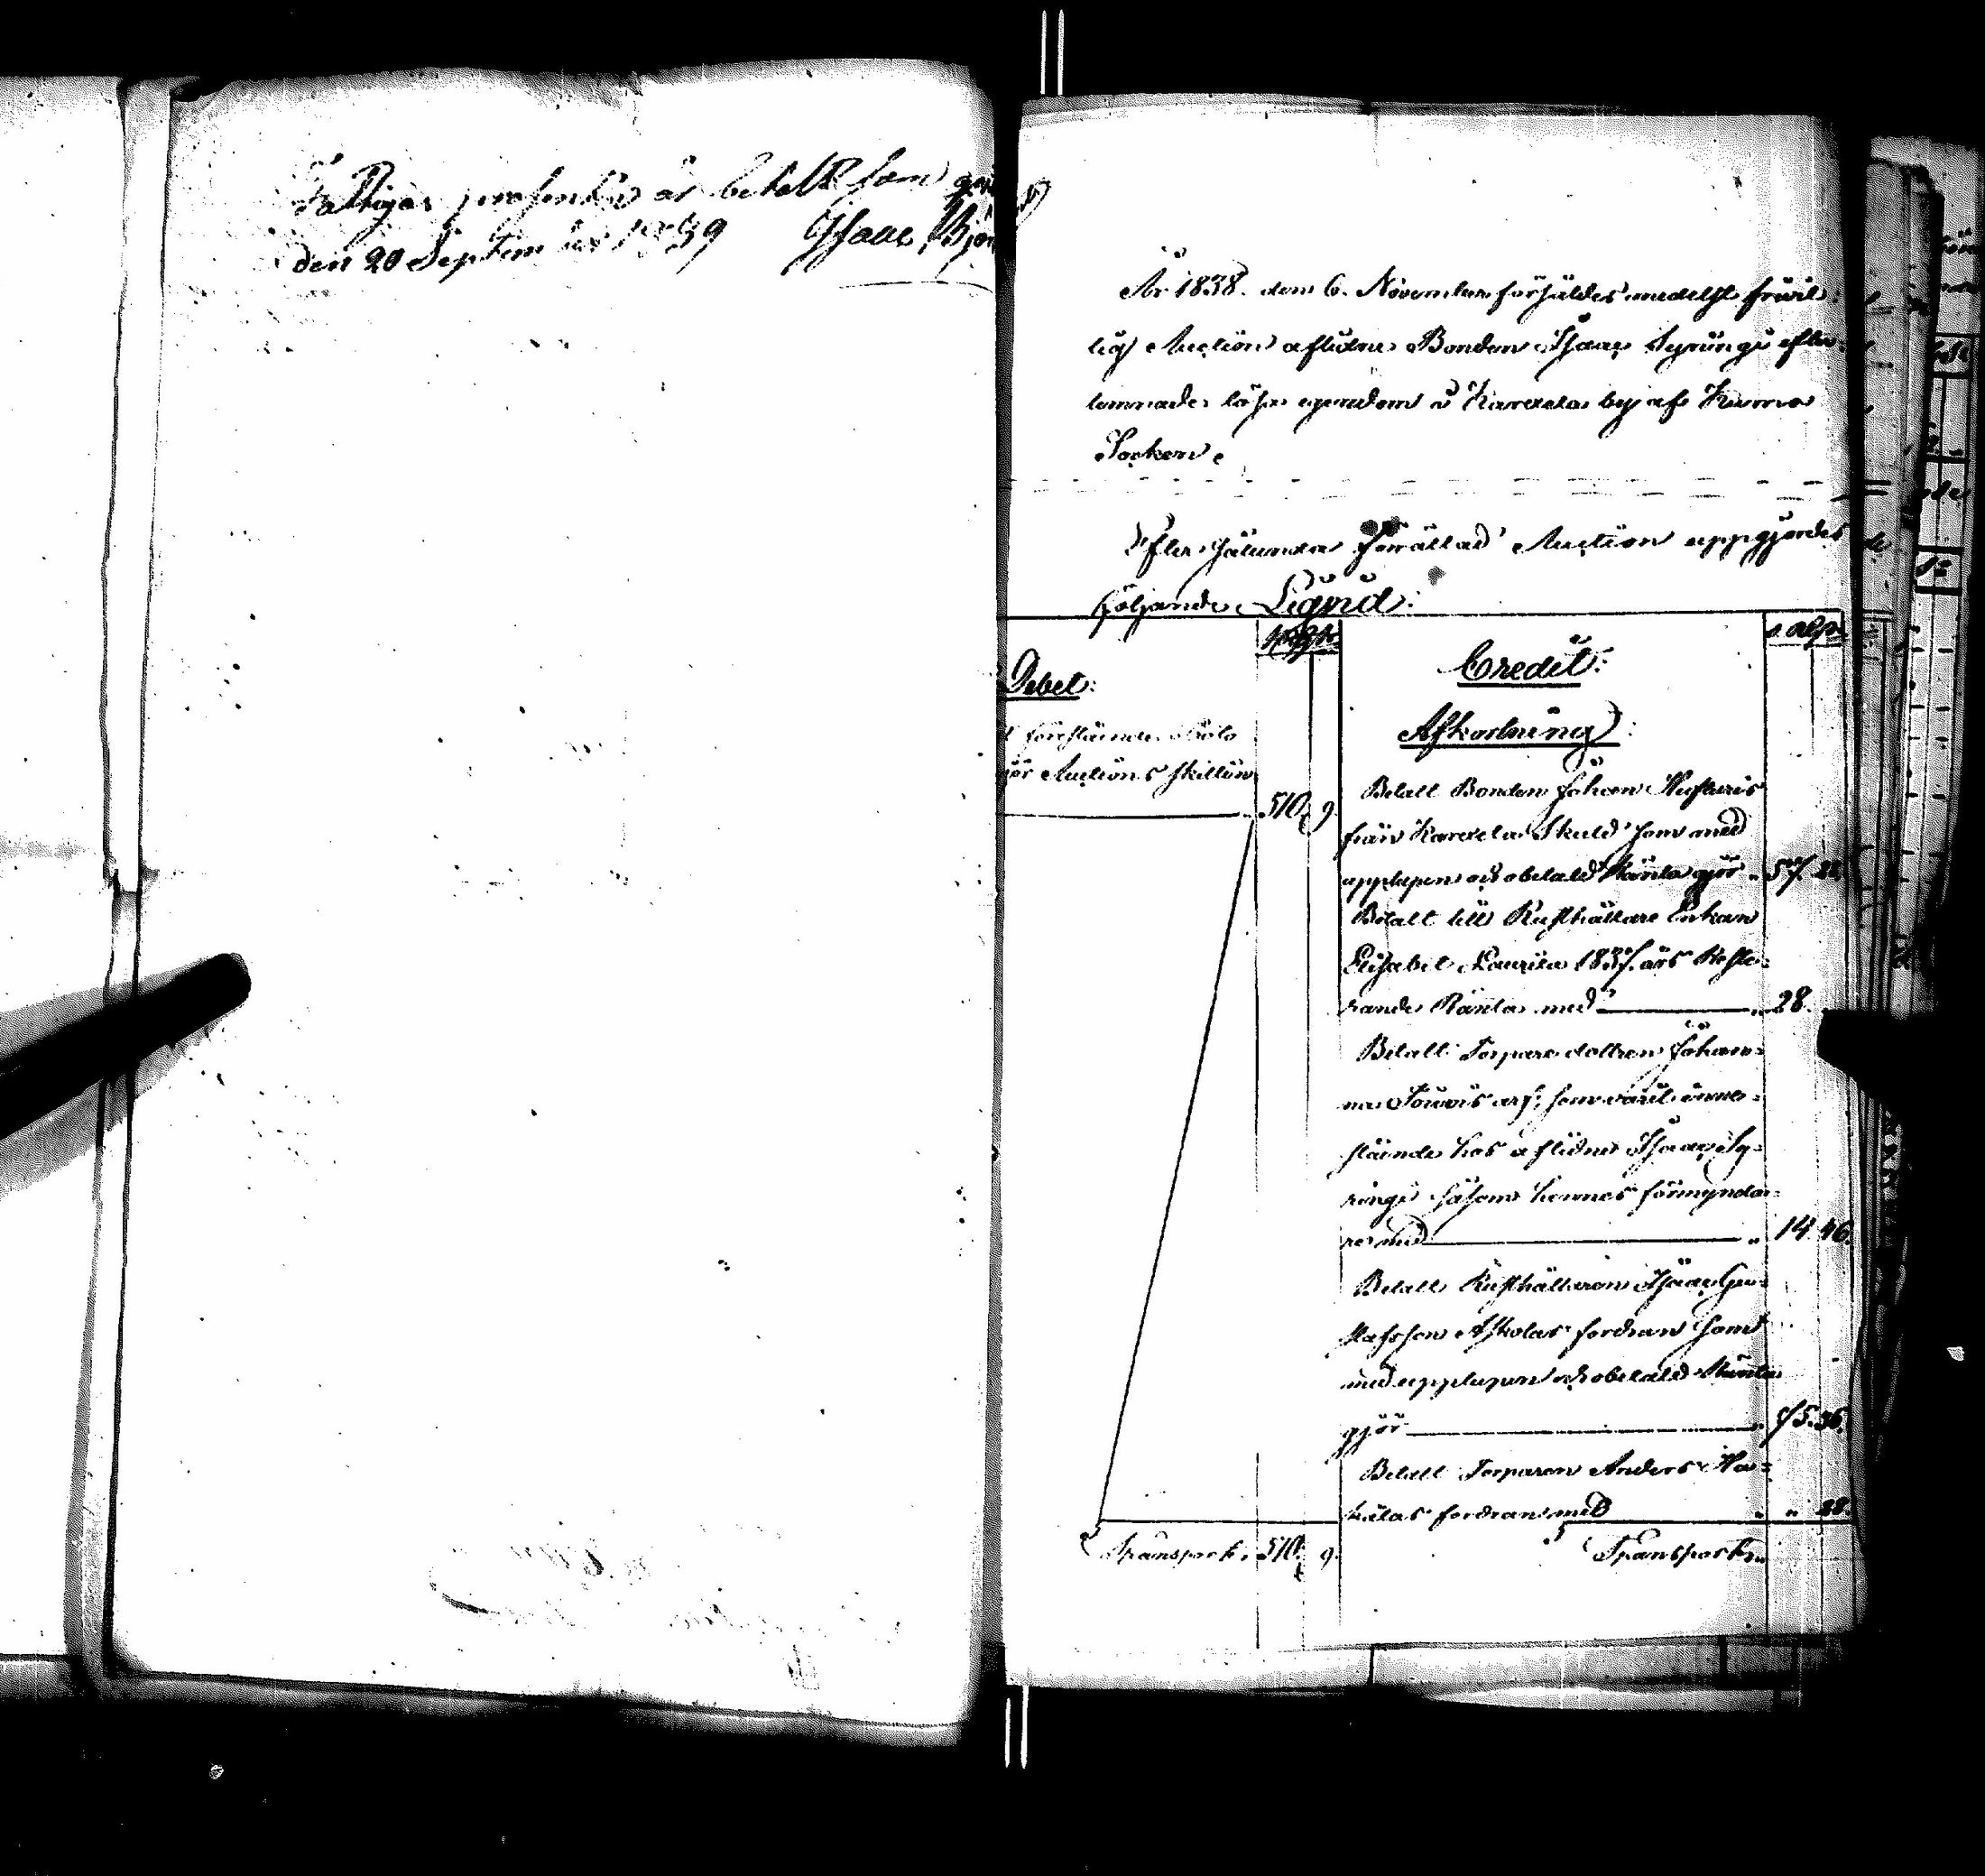 Fattigas procenten är betalt som
den 20 September 1839 Isaac
År 1838. den 6. November försåldes medelst friwil-
lig Auction aflidne Bonden Isaac Syrings efter-
lemnade lösa egendom i Karvela by af Kumo
Socken.
Efter sålunda förrättad Auction uppgjordes
följande Liqvid:
Debet:
förestående
gör Auctions skillin
510. 9.
Transport. 510. 9.
Credit:
Afkortning:
Betalt Bonden Johan
från Karvela Skuld som med
upplupen och obetald Ränta gör „ 57.
Betalt till Rusthållare Enkan
Elisabet Laurila 1837 års Reste-
rande Ränta med „ 28.
Betalt Torpare dottren Johan-
na arf, som varit inne-
stående hos aflidne Isaac Sy-
rings såsom hennes förmynda-
re med „ 14. 46.
Betalt Rusthållaren Isaac Gu-
stafsson Askolas fordran som
med upplupen och obetald Ränta
gör „ 75. 36.
Betalt Torparen Anders
kälas fordran med „ „ 28.
Transport „